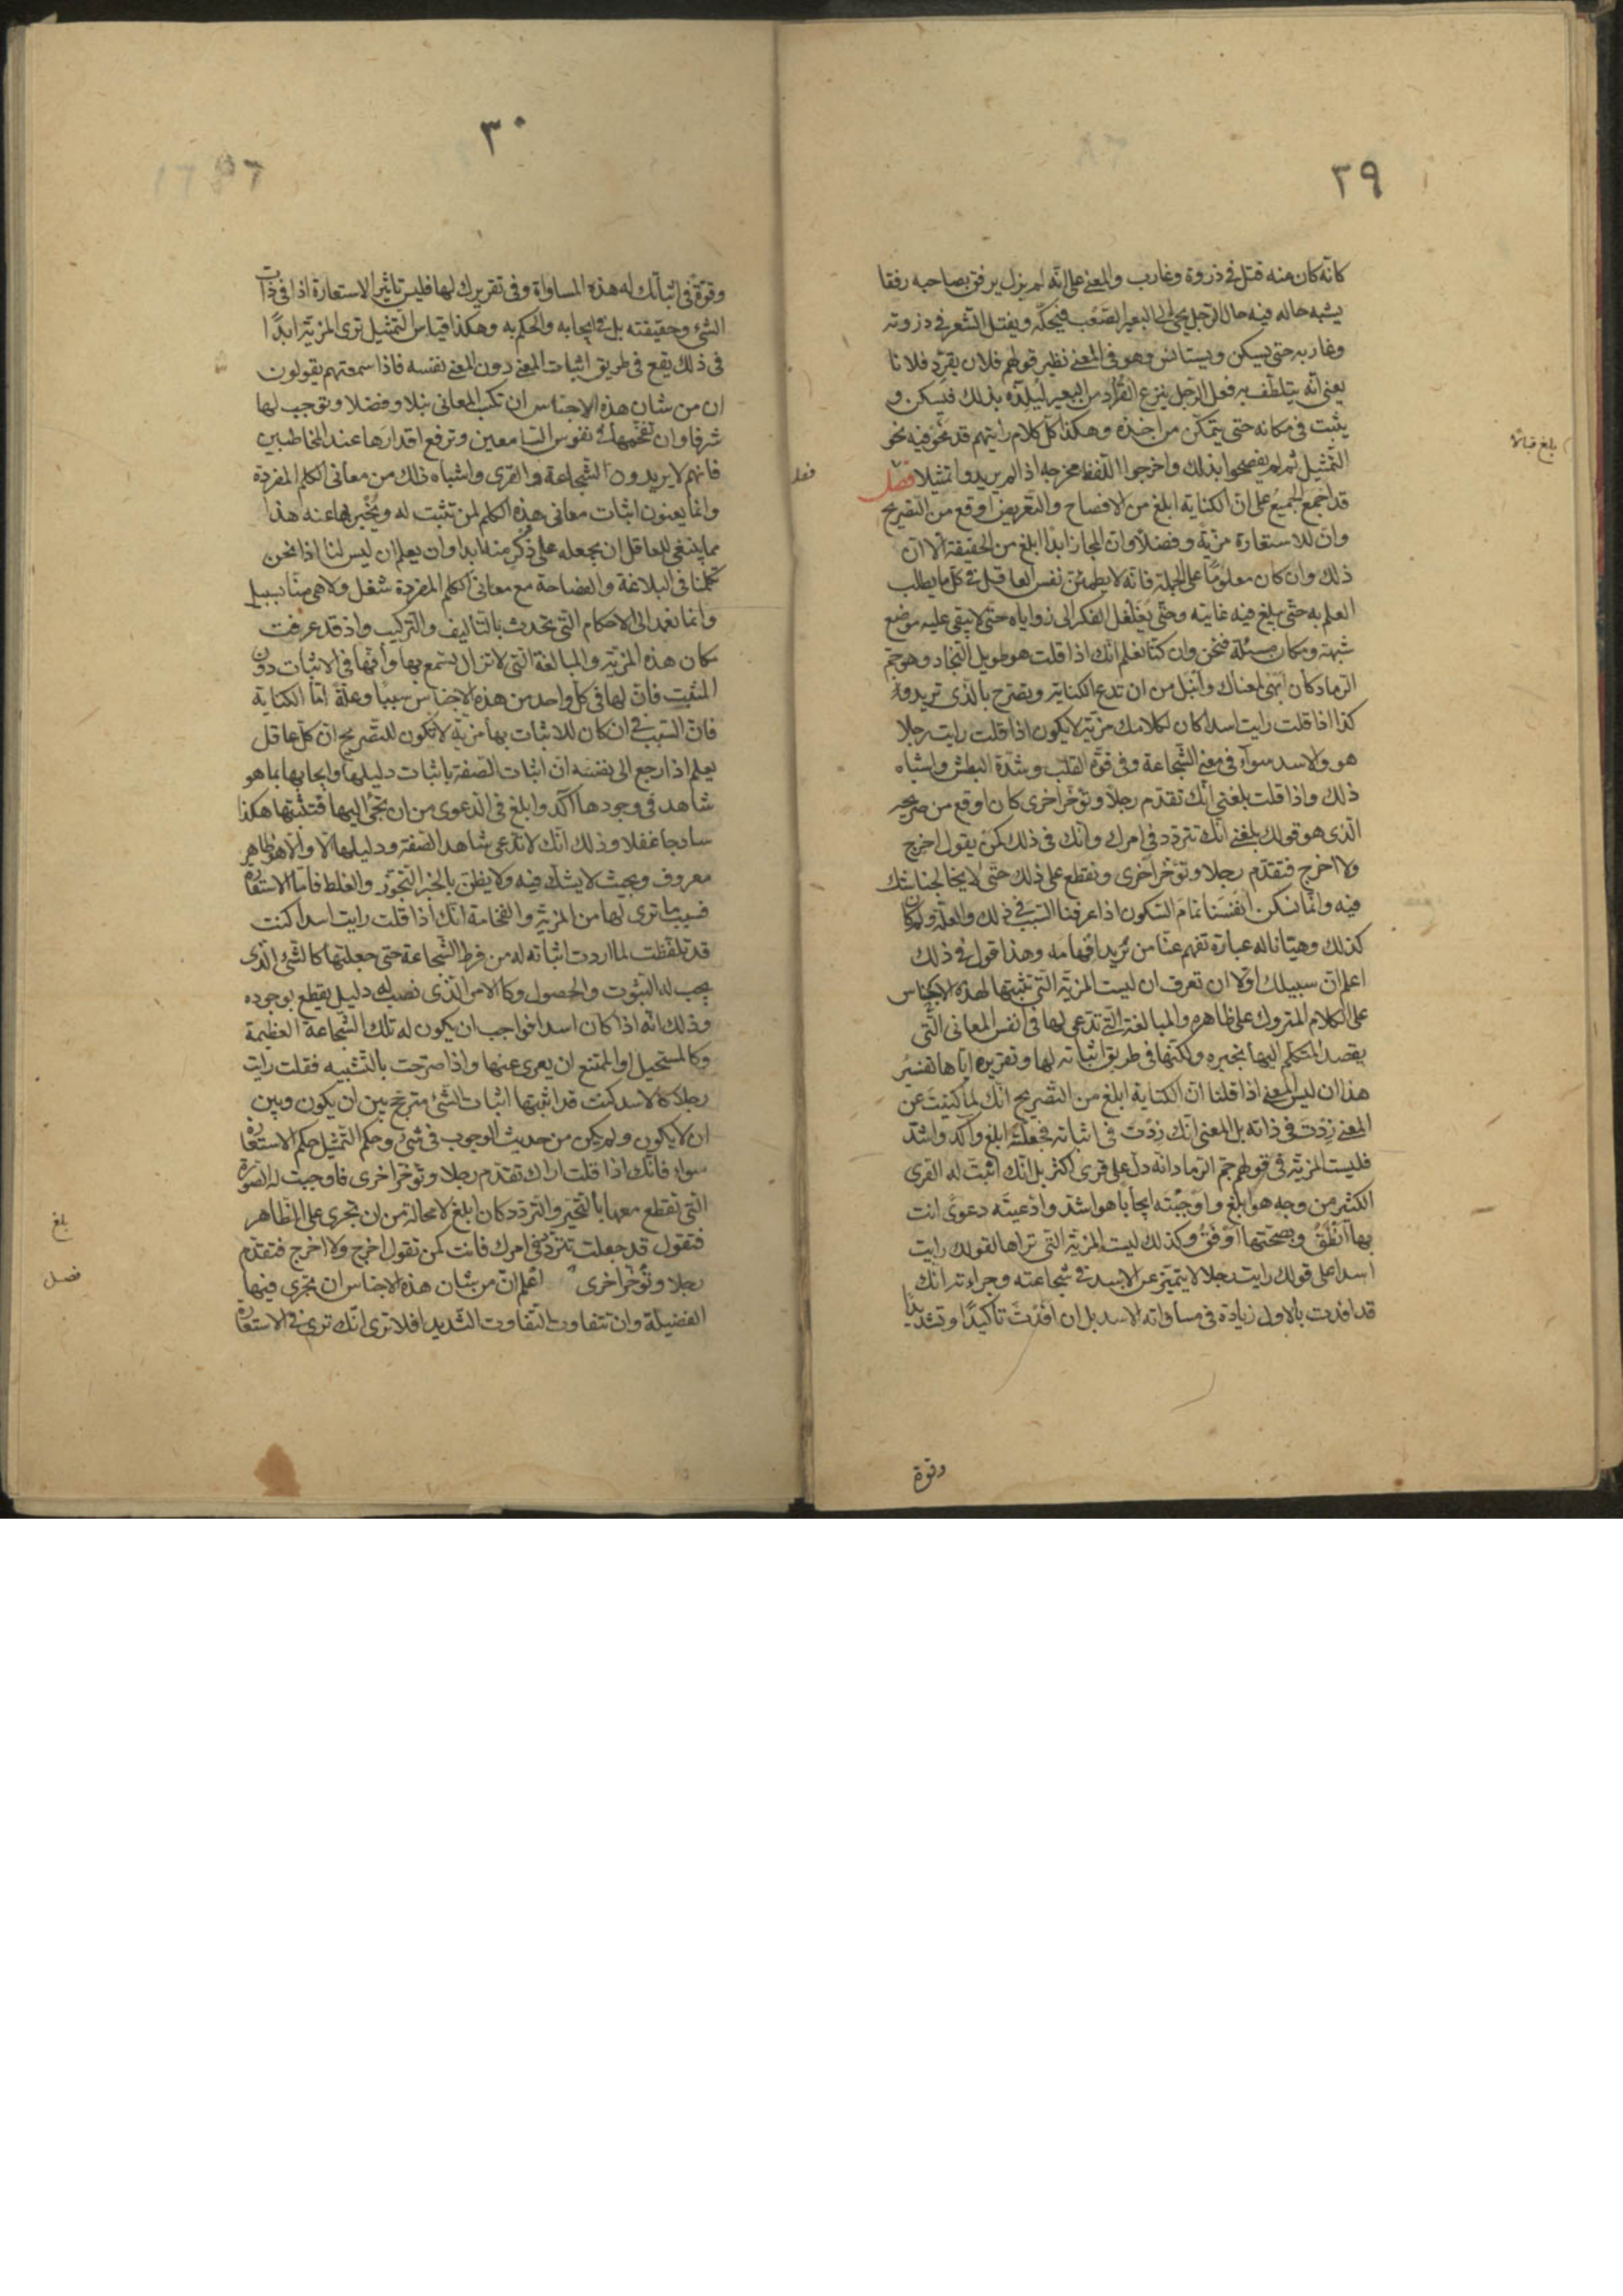 ٢٩
كانّه كان منه فتل فى ذروة وغارب والمعنى على انّه لم يزل يرفق بصاحبه رفقا
يشبه حاله فيه حال الرّجل يجئ الى البعير الصّعب فيحكّه ويفتل الشّعر فى ذروته
وغاربه حتى يسكن ويستانس وهو فى المعنى نظير قولهم فلان يقرّد فلانا
يعنى انّه يتلطّف به فعل الرّجل ينزع القُراد من البعير ليُلِذّه بذلك فيسكن و
يثبت فى مكانه حتى يتمكّن من اخذه وهكذا كلّ كلام رايتهم قد نحَوا فيه نحو
التّمثيل ثم لم يفصحوا بذلك واخرجوا اللّفظ مخرجه اذا لم يريدوا تمثيلا فصل
قد اجمع الجميعُ على ان الكناية ابلغ من الافصاح والتّعريض اوقع من التّصريح
وانّ للاستعارة مزيّة وفضلاً وان المجاز ابدًا ابلغ من الحقيقة الّا انّ
ذلك وان كان معلومًا على الجملة فانّه لا يطمئنّ نفس العاقل فى كلّ ما يطلب
العلم به حتّى يبلغ فيه غايته وحتّى يغلغل الفكر الى زواياه حتى لا يبقى عليه موضع
شبهة ومكان مسئلة فنحن وان كنّا نعلم انّك اذا قلت هو طويل النّجاد وهو جمّ
الرّماد كان ابهى لمعناك وانبل من ان تدع الكناية وتصرّح بالّذى تريد و
كذا اذا قلت رايت اسدا كان لكلامك مزيّة لا يكون اذا قلت رايت رجلا
هو والاسد سواء فى معنى الشّجاعة وفى قوّة القلب وشدّة البطش واشباه
ذلك واذا قلت بلغنى انّك تقدّم رجلاً وتؤخّر اخرى كان اوقع من صريحه
الّذى هو قولك بلغنى انّك تتردّد فى امرك وانّك فى ذلك كمن يقول اخرج
ولا اخرج فتقدّم رجلا وتؤخّر اخرى ونقطع على ذلك حتّى لا يخالجنا شك
فيه وانّما تسكن انفسنا تمام السّكون اذا عرفنا السّبب فى ذلك والعلّة ولم كان
كذلك وهيّانا له عبارة تفهم عنّا من نريد افهامه وهذا قول فى ذلك
اعلم انّ سبيلك اوّلا ان تعرف ان ليست المزيّة الّتى تثبتها لهذه الاجناس
على الكلام المتروك على ظاهره والمبالغة الّتى تدّعى لها فى انفس المعانى الّتى
يقصد المتكلّم اليها بخبره ولكنّها فى طريق اثباته لها وتقريره ايّاها تفسيرُ
هذا ان ليس المعنى اذا قلنا انّ الكناية ابلغ من التّصريح انّك لمّا كنيتَ عن
المعنى زِدتَ فى ذاته بل المعنى انّك زدتَ فى اثباته فجعلته ابلغ وآكد واشدّ
فليست المزيّة فى قولهم جمّ الرماد انّه دلّ على قرى اكثر بل انّك اثبتّ له القرى
الكثير من وجه هو ابلغ واوجَبْتَه ايجابًا هو اشدّ وادّعيتَه دعوىً انت
بها انطَقُ وبصحّتها اوْثَقُ وكذلك ليست المزيّة التى تراها لقولك رايت
اسدا على قولك رايت رجلا لا يتميّز عن الاسد فى شجاعته وجراءته انك
قد افدت بالاول زيادة فى مساواته الاسد بل ان افدْتَ تاكيدًا وتشديدًا
وقوّة
بلغ قبالا
٣٠
وقوّة فى اثباتك له هذه المساواة وفى تقريرك لها فليس تاثير الاستعارة اذا فى ذات
الشئ وحقيقته بل فى ايجابه والحكم به وهكذا قياس التّمثيل ترى المزيّة ابدًا
فى ذلك يقع فى طريق اثبات المعنى دون المعنى نفسه فاذا سمعتهم يقولون
ان من شان هذه الاجناس ان تكسب المعانى نبلا وفضلا وتوجب لها
شرفا وان تفخّمها فى نفوس السّامعين وترفع اقدارَها عند المخاطبين
فانهم لا يريدون الشّجاعة والقرى واشباه ذلك من معانى الكلم المفردة
وانّما يعنون اثبات معانى هذه الكلم لمن تثبت له ويُخبر بها عنه هذا
مما ينبغى للعاقل ان يجعله على ذُكرٍ منه ابدا وان يعلم ان ليس لنا اذا نحن
تكلمنا فى البلاغة والفصاحة مع معانى الكلم المفردة شغل ولا هى منّا بسبيل
وانّما نعمد الى الاحكام التى تحدث بالتّاليف والتّركيب واذ قد عرفت
مكان هذه المزيّة والمبالغة الّتى لا تزال يسمع بها وانّها فى الاثبات دون
المثبت فانّ لها فى كلّ واحد من هذه الاجناس سببًا وعلّةً امّا الكناية
فان السّبب فى ان كان للاثبات بها مزيّة لا تكون للتّصريح ان كلّ عاقل
يعلم اذا رجع الى نفسه انّ اثبات الصّفة باثبات دليلها وايجابها بما هو
شاهد فى وجودها آكد وابلغ فى الدّعوى من ان تجئ اليها فتثبتها هكذا
ساذجا غفلا وذلك انّك لا تدّعى شاهد الصّفة ودليلها الّا والامر ظاهر
معروف وبحيث لا يشكّ فيه ولا يظنّ بالمخبر التّجوّز والغلط فامّا الاستعارة
فسبب ما ترى لها من المزيّة والفخامة انّك اذا قلت رايت اسدا كنت
قد تلطّفت لما اردت اثباته له من فرط الشّجاعة حتى جعلتها كالشّئ الّذى
يجب له الثبوت والحصول وكالامر الّذى نصب له دليل يقطع بوجوده
وذلك انّه اذا كان اسدا فواجب ان يكون له تلك الشّجاعة العظيمة
وكالمستحيل او الممتنع ان يعرى عنها واذا صرّحت بالتّشبيه فقلت رايت
رجلا كالاسد كنت قد اثبتها اثبات الشّئ مترجّح بين ان يكون وبين
ان لا يكون ولم يكن من حديث الوجوب فى شئ وحكم التّمثيل حكم الاستعارة
سواء فانّك اذا قلت اراك تقدّم رجلا وتؤخّر اخرى فاوجبت له الصّورة
الّتى تقطع معها بالتّحيّر والتّردّد كان ابلغ لا محالة من ان تجرى على الظّاهر
فتقول قد جعلت تتردّد فى امرك فانت كمن تقول اخرج ولا اخرج فتقدّم
رجلا وتؤخّر اخرى اعلم انّ من شان هذه الاجناس ان تجرى فيها
الفضيلة وان تتفاوت التّفاوت الشّديد افلا ترى انّك ترى فى الاستعارة
بلغ
فصل